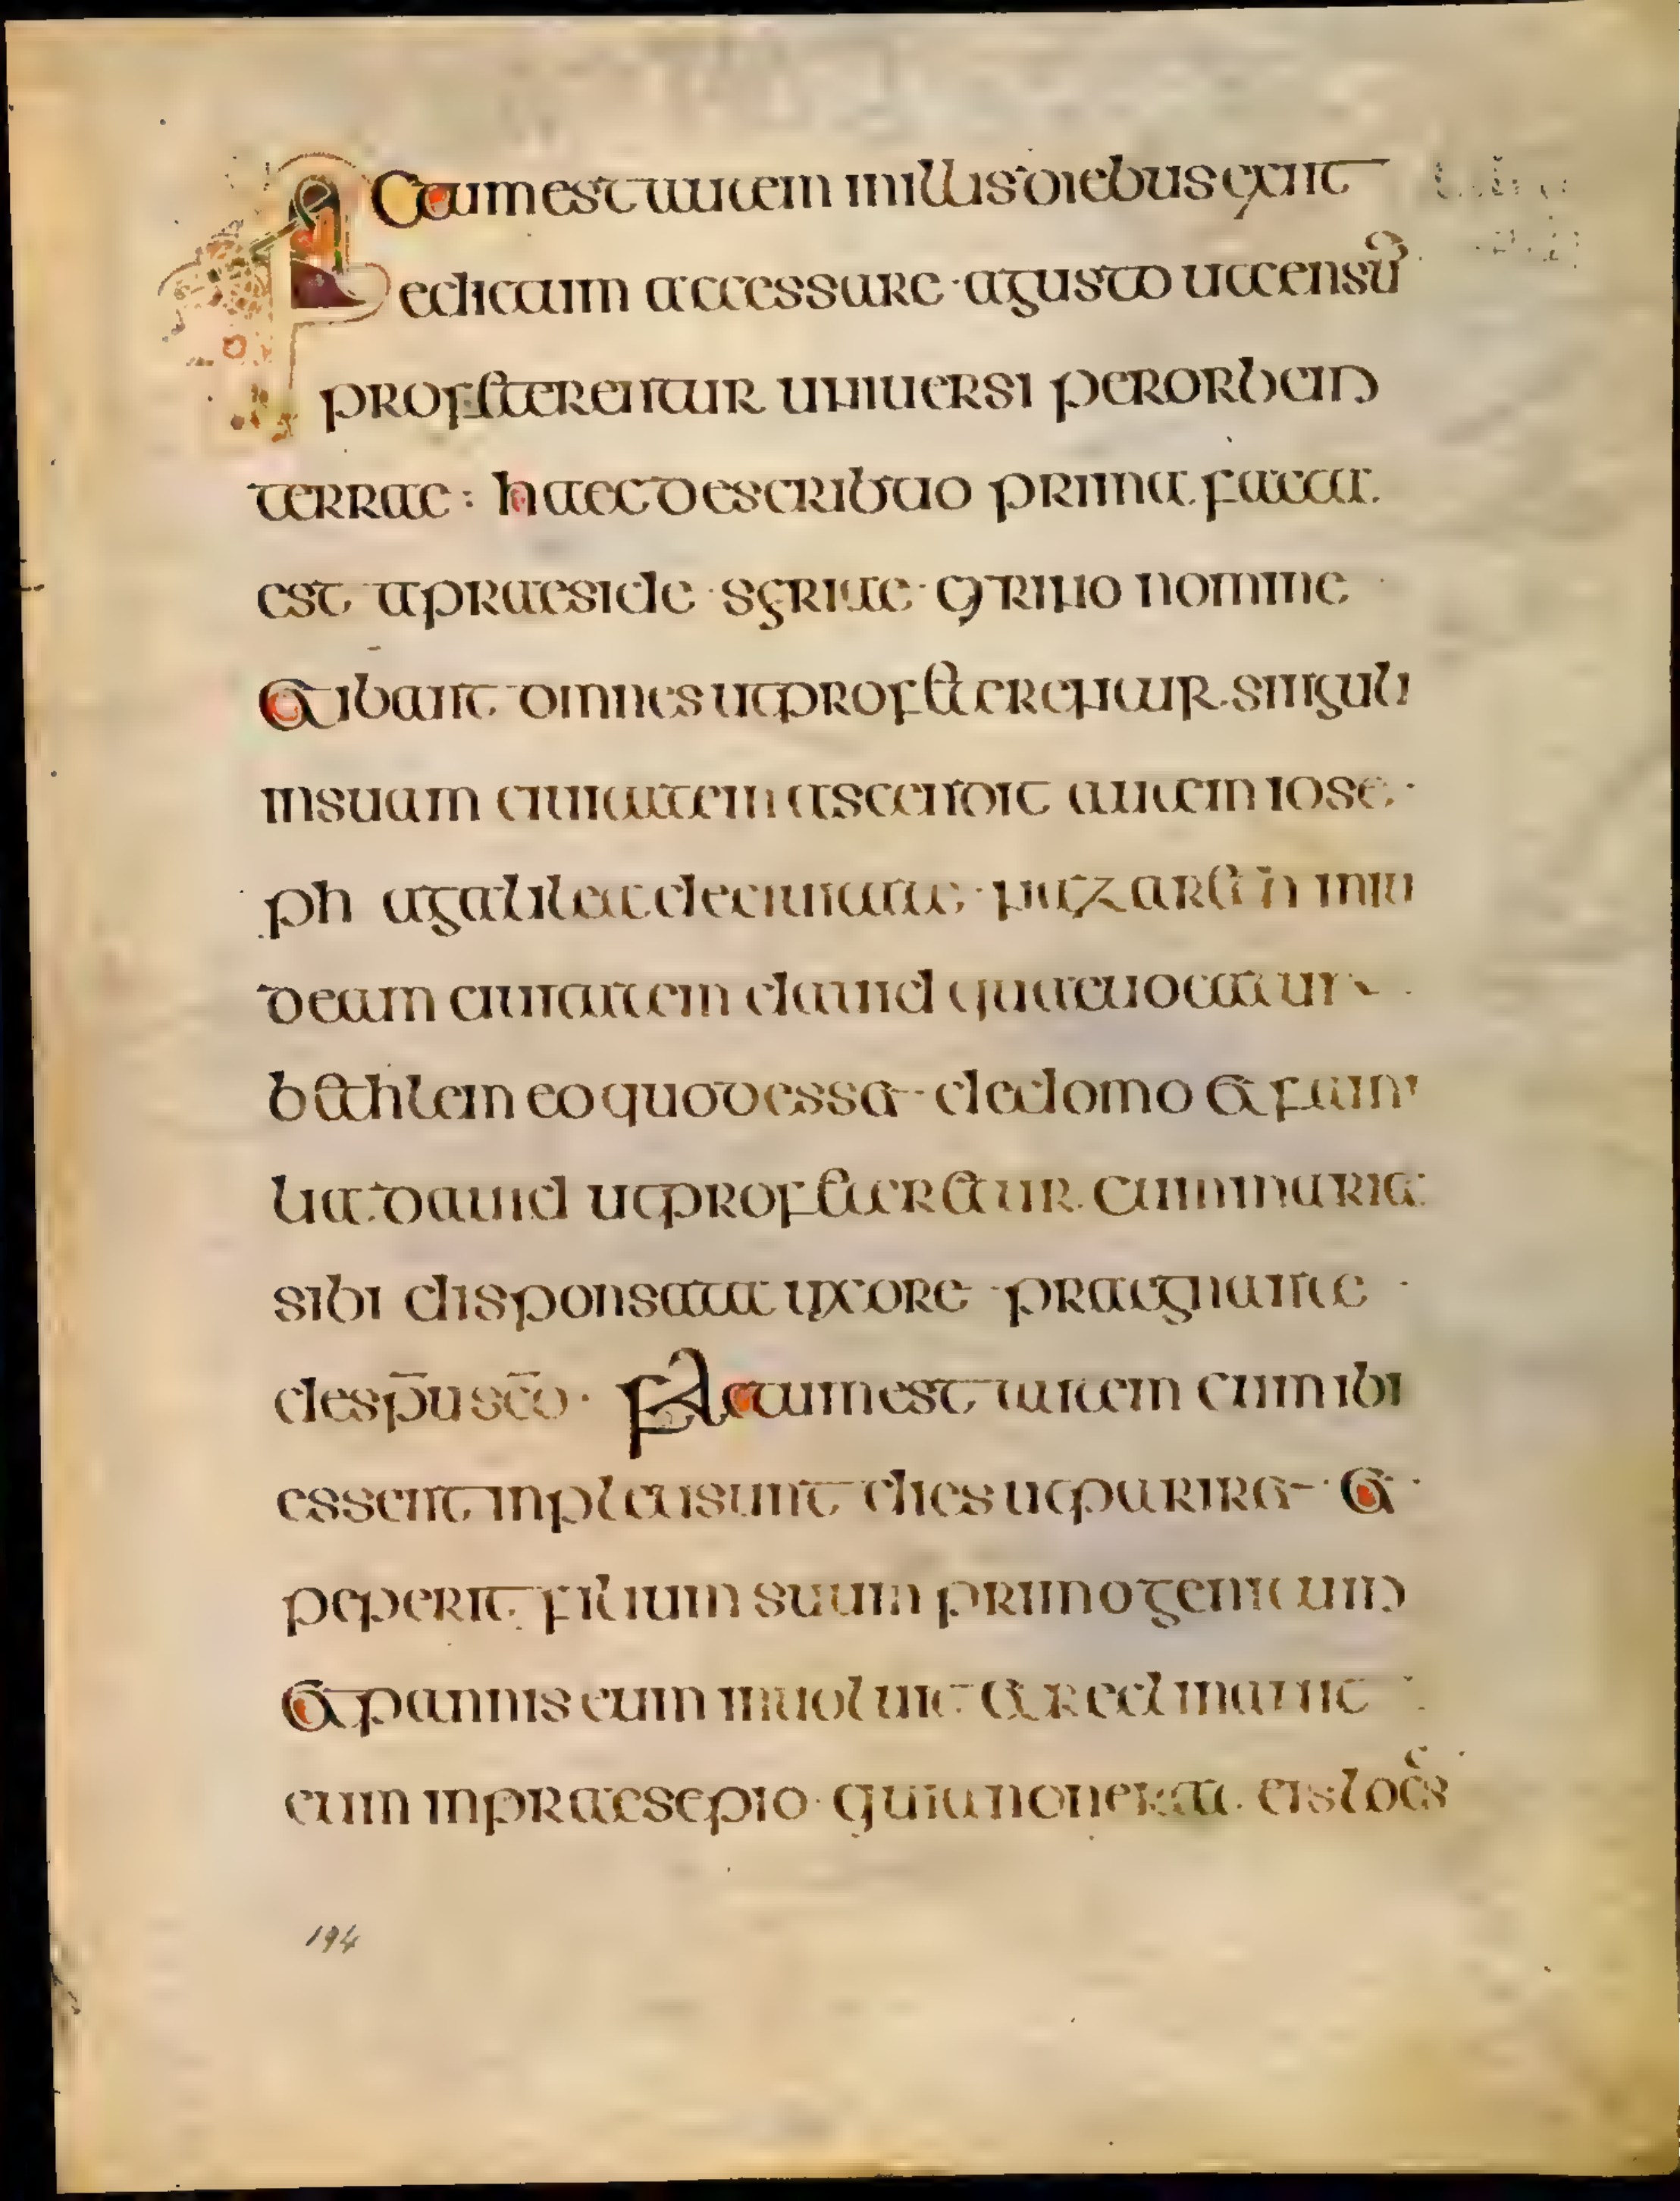 FACtum est autem in illis diebus exiit
edictum a cessare agusto ut censū
profeterentur uniuersi per orbem
terrae : haec describtio prima facta
est a praeside syriae cyrino nomine
et ibant omnes ut profeterentur singuli
in suam ciuitatem ascendit autem iose
ph a galilea de ciuitate nazareth in iu
deam ciuitatem dauid quae uocatur
bethlem eo quod esset de domo et fami
lia dauid ut profeteretur cum maria
sibi disponsata uxore praegnante
de sp̄u sc̄o · Factum est autem cum ibi
essent inpleti sunt dies ut pariret et
peperit filium suum primogenitum
et pannis eum inuoluit et reclinauit
eum in praesepio quia non erat eis locus
194